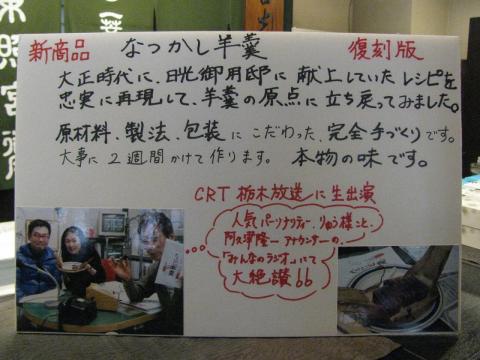 新商品 なつかし羊羹 復刻版
大正時代に、日光御用邸に献上していたレシピを
忠実に再現して、羊羹の原点に立ち戻ってみました。
原材料、製法、包装にこだわった、完全手づくりです。
大事に2週間かけて作ります。 本物の味です。
CRT栃木放送に生出演
人気パーソナリティー、りゅう様こと、
阿久津隆一アナウンサーの、
「みんなのラジオ」にて
大絶讃
照宮